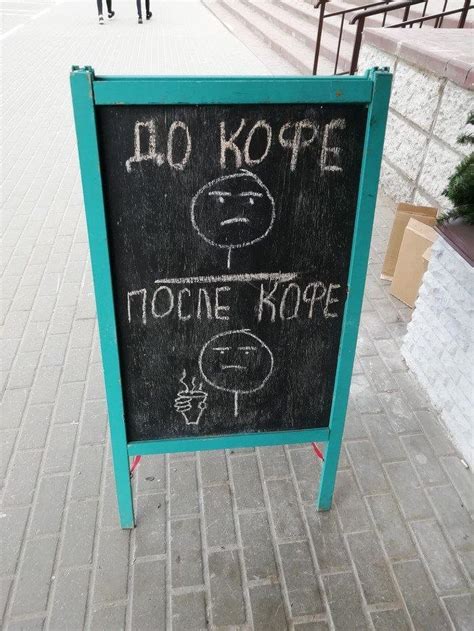 ДО КОФЕ
ПОСЛЕ КОФЕ